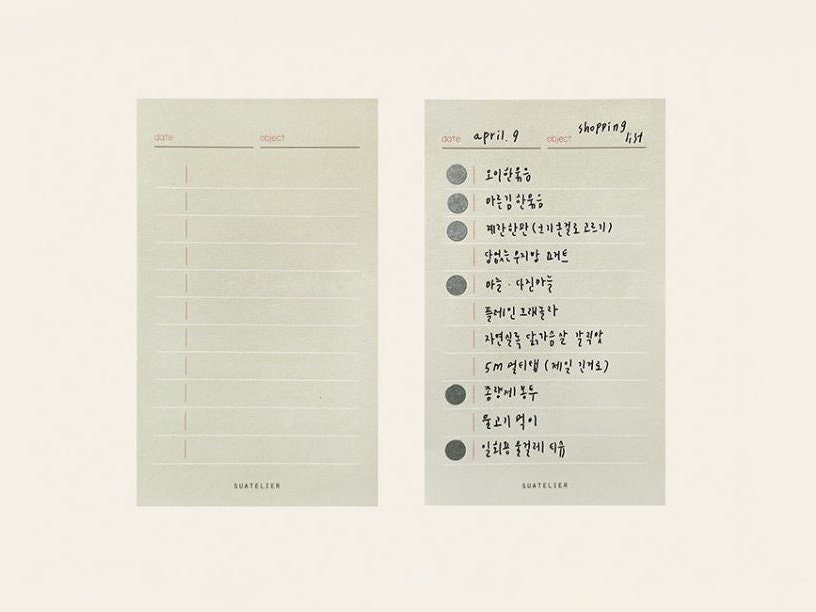 date object
SUATELIER
date april. 9 object shopping list
오이한묶음
마른김 한묶음
계란한판 (크기큰걸로 고르기)
당없는 무지방 요거트
마늘 · 다진마늘
플레인 그래놀라
자연실록 닭가슴살 갈릭맛
5m 멀티탭 (제일 긴거로)
종량제 봉투
물고기 먹이
일회용 물걸레 티슈
SUATELIER